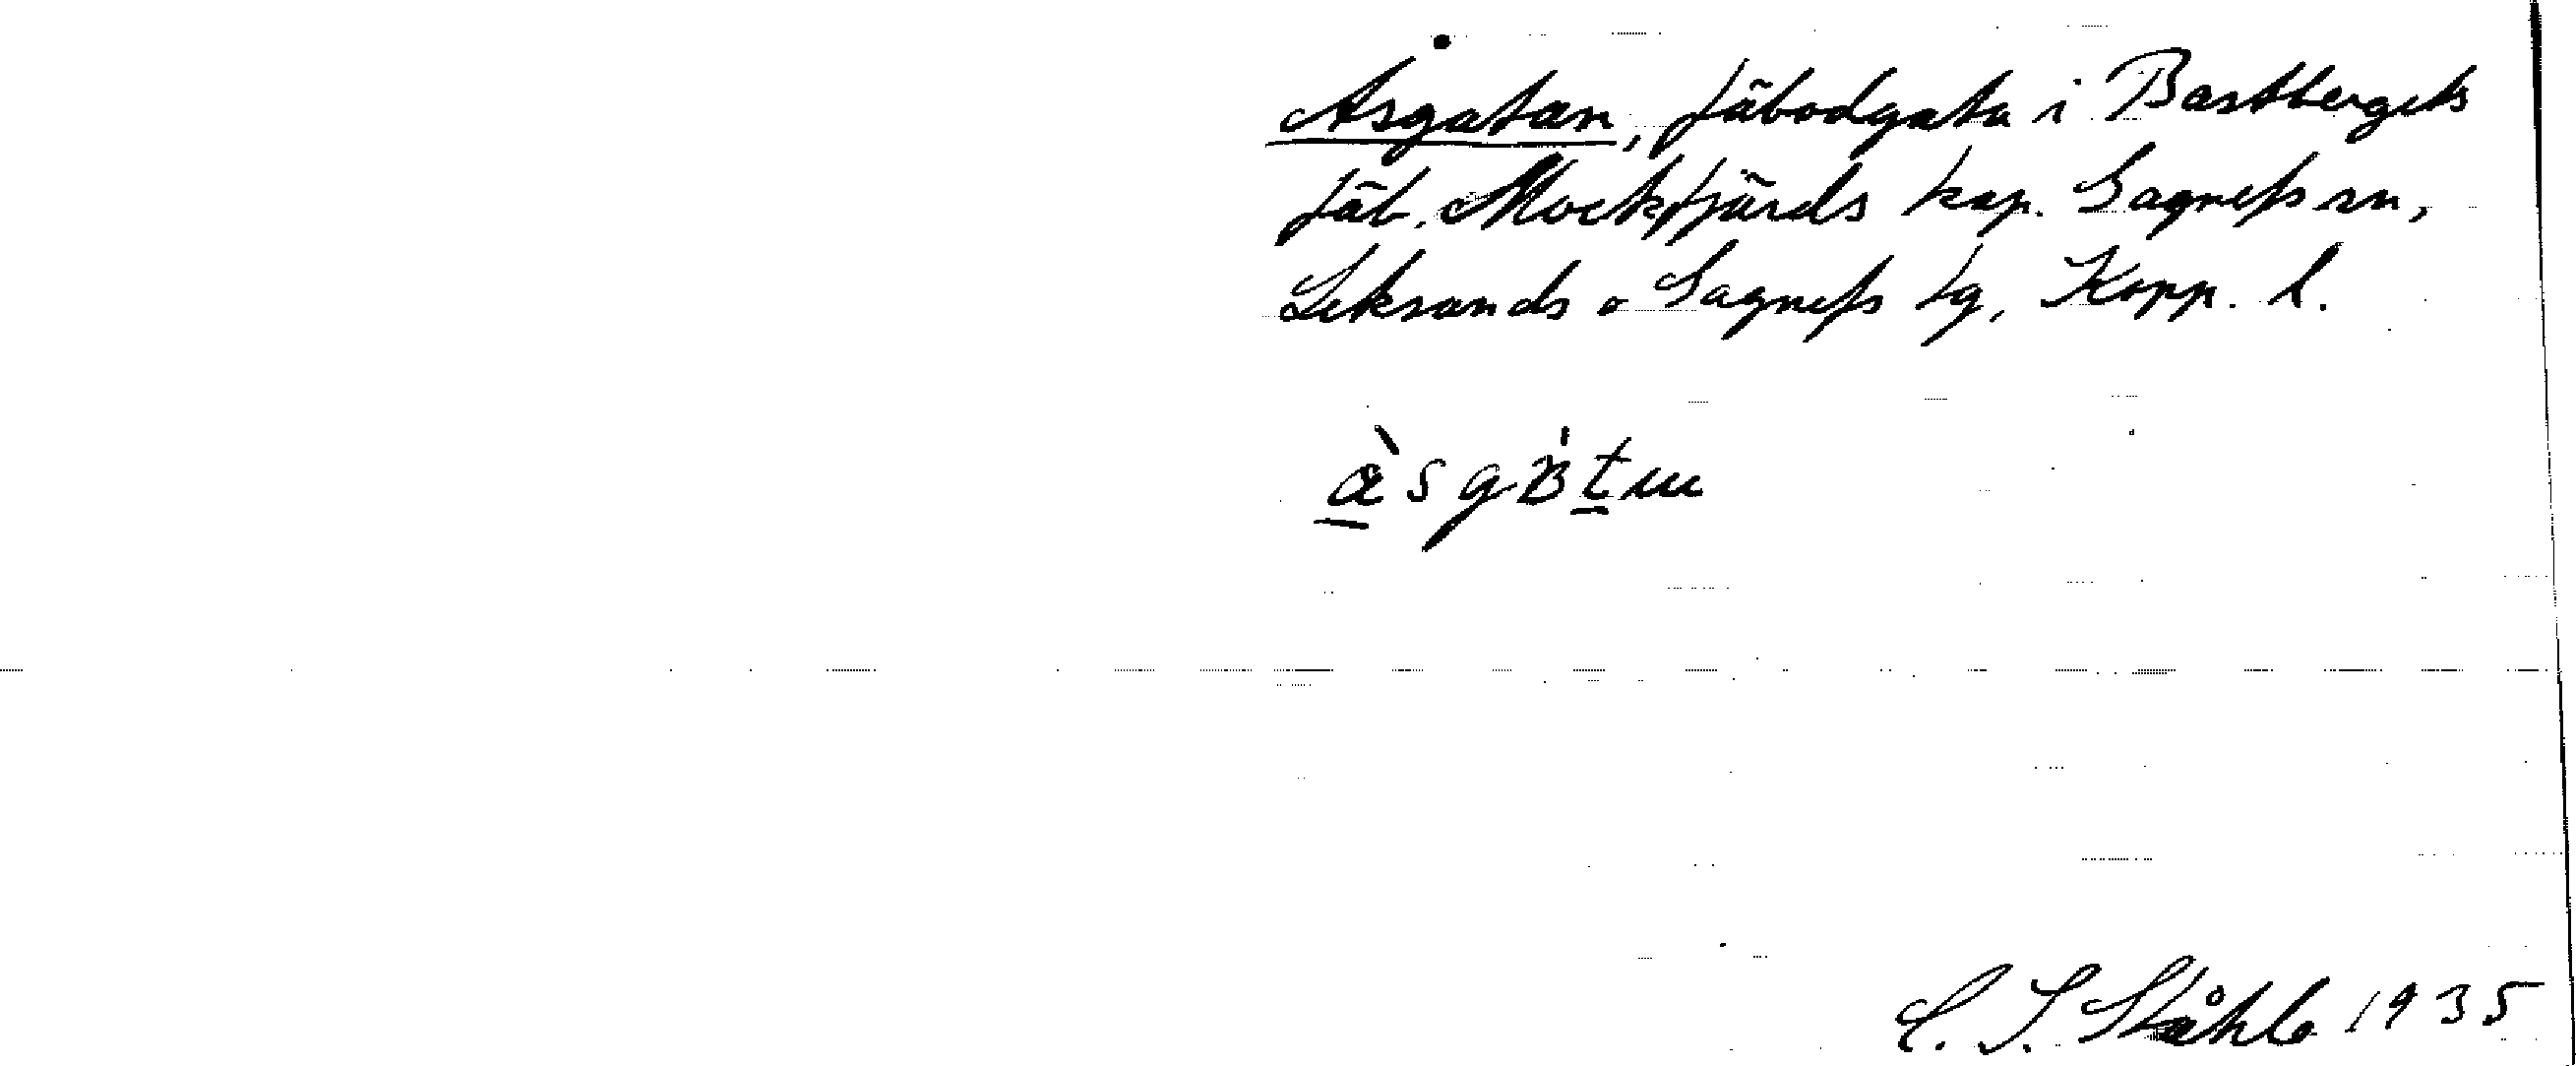 Åsgatan, fäbodgata i Bastbergets
fäb. Mockfjärds kap. Gagnefs sn,
Leksands o Gagnefs tg, Kopp. l.
C. I. Ståhle 1935